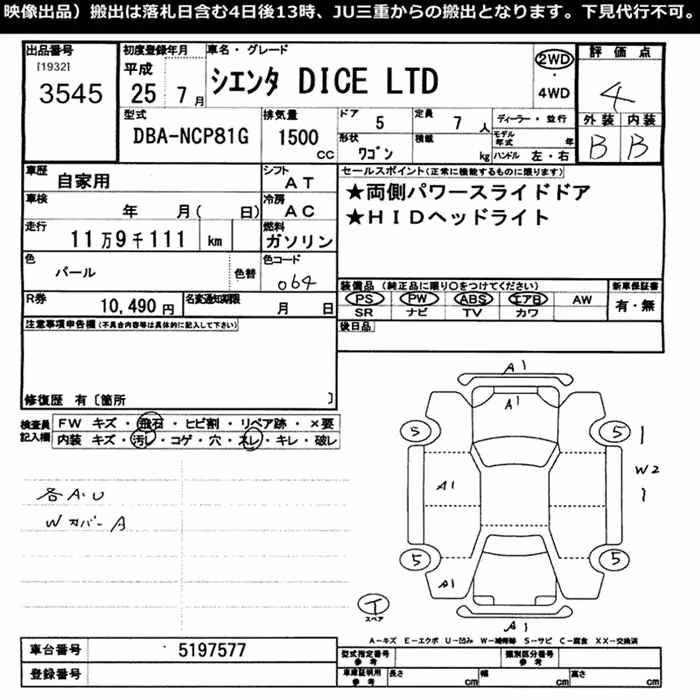 映像出品）搬出は落札日含む4日後13時、JU三重からの搬出となります。下見代行不可。
出品番号
[1932]
3545
初度登録年月
平成
25 7月
車名・グレード
シエンタ DICE LTD
2WD
・
4WD
評価点
4
外装 内装
B B
型式
DBA-NCP81G
排気量
1500
cc
ドア
5
定員
7 人
形状
ワゴン
積載
kg
ディーラー・並行
モデル年式 年
ハンドル 左・右
車歴
自家用
シフト
AT
車検
年 月( 日)
冷房
AC
走行
11万9千111 km
燃料
ガソリン
色
パール
色替
色コード
064
R券
10,490 円
名変通知期限
月 日
セールスポイント(正常に機能するものに限ります)
★両側パワースライドドア
★HIDヘッドライト
装備品（純正品に限り○をつけてください）
PS PW ABS エアB AW
SR ナビ TV カワ
新車保証書
有・無
後日品
注意事項申告欄(不具合内容等は具体的に記入して下さい)
修復歴 有〔箇所 〕
検査員
記入欄
FW キズ・飛石・ヒビ割・リペア跡・×要
内装 キズ・汚レ・コゲ・穴・スレ・キレ・破レ
各A.U
Wカバー A
A1
A1
5
5
W2
A1
5
5
A1
A1
T
スペア
A-キズ E-エクボ U-凹み W-補修跡 S-サビ C-腐食 XX-交換済
車台番号
5197577
登録番号
型式指定番号
参考
類別区分番号
参考
車庫証明用
参考
長さ cm
幅 cm
高さ cm